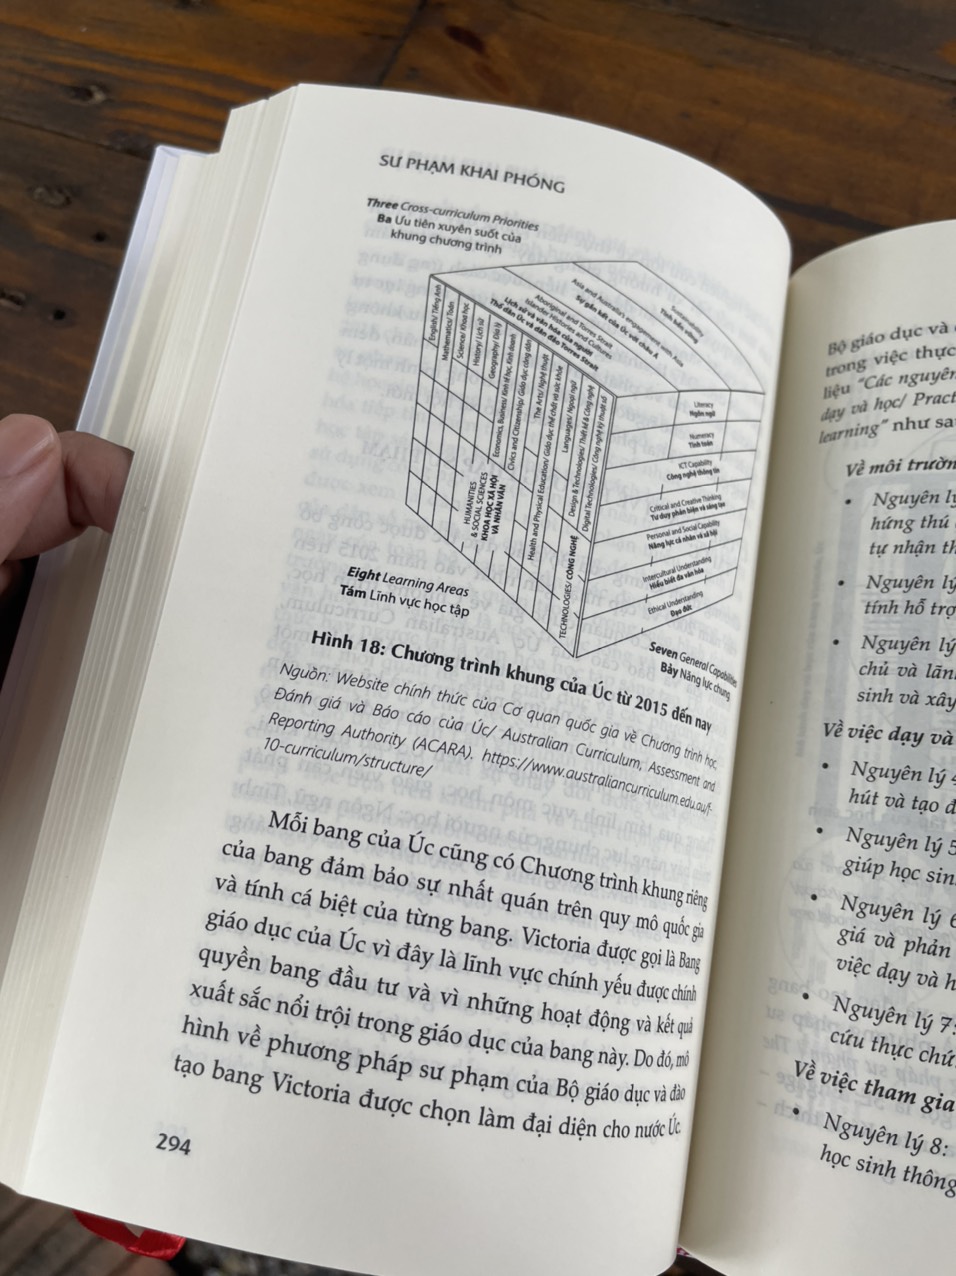 SƯ PHẠM KHAI PHÓNG
Three Cross-curriculum Priorities
Ba Ưu tiên xuyên suốt của
khung chương trình
Sustainability
Tính bền vững
Asia and Australia's engagement with Asia
Sự gắn kết của Úc với châu Á
Aboriginal and Torres Strait
Islander Histories and Cultures
Lịch sử và văn hóa của người
Thổ dân Úc và dân đảo Torres Strait
English/ Tiếng Anh
Mathematics/ Toán
Science/ Khoa học
History/ Lịch sử
Geography/ Địa lý
Economics, Business/ Kinh tế học, Kinh doanh
Civics and Citizenship/ Giáo dục công dân
HUMANITIES
& SOCIAL SCIENCES
KHOA HỌC XÃ HỘI
VÀ NHÂN VĂN
The Arts/ Nghệ thuật
Health and Physical Education/ Giáo dục thể chất và sức khỏe
Languages/ Ngoại ngữ
Design & Technologies/ Thiết kế & Công nghệ
Digital Technologies/ Công nghệ kỹ thuật số
TECHNOLOGIES/ CÔNG NGHỆ
Literacy
Ngôn ngữ
Numeracy
Tính toán
ICT Capability
Công nghệ thông tin
Critical and Creative Thinking
Tư duy phản biện và sáng tạo
Personal and Social Capability
Năng lực cá nhân và xã hội
Intercultural Understanding
Hiểu biết đa văn hóa
Ethical Understanding
Đạo đức
Eight Learning Areas
Tám Lĩnh vực học tập
Seven General Capabilities
Bảy Năng lực chung
Hình 18: Chương trình khung của Úc từ 2015 đến nay
Nguồn: Website chính thức của Cơ quan quốc gia về Chương trình học,
Đánh giá và Báo cáo của Úc/ Australian Curriculum, Assessment and
Reporting Authority (ACARA). https://www.australiancurriculum.edu.au/f-
10-curriculum/structure/
Mỗi bang của Úc cũng có Chương trình khung riêng
của bang đảm bảo sự nhất quán trên quy mô quốc gia
và tính cá biệt của từng bang. Victoria được gọi là Bang
giáo dục của Úc vì đây là lĩnh vực chính yếu được chính
quyền bang đầu tư và vì những hoạt động và kết quả
xuất sắc nổi trội trong giáo dục của bang này. Do đó, mô
hình về phương pháp sư phạm của Bộ giáo dục và đào
tạo bang Victoria được chọn làm đại diện cho nước Úc.
294
Bộ giáo dục và
trong việc thực
liệu "Các nguyên
dạy và học/ Pract
learning" như sau
Về môi trườn
• Nguyên lý
hứng thú
tự nhận th
• Nguyên lý
tính hỗ trợ
• Nguyên lý
chủ và lãn
sinh và xây
Về việc dạy và
• Nguyên lý 4
hút và tạo đ
• Nguyên lý 5
giúp học sin
• Nguyên lý 6
giá và phản
việc dạy và h
• Nguyên lý 7:
cứu thực chứ
Về việc tham gia
• Nguyên lý 8:
học sinh thông